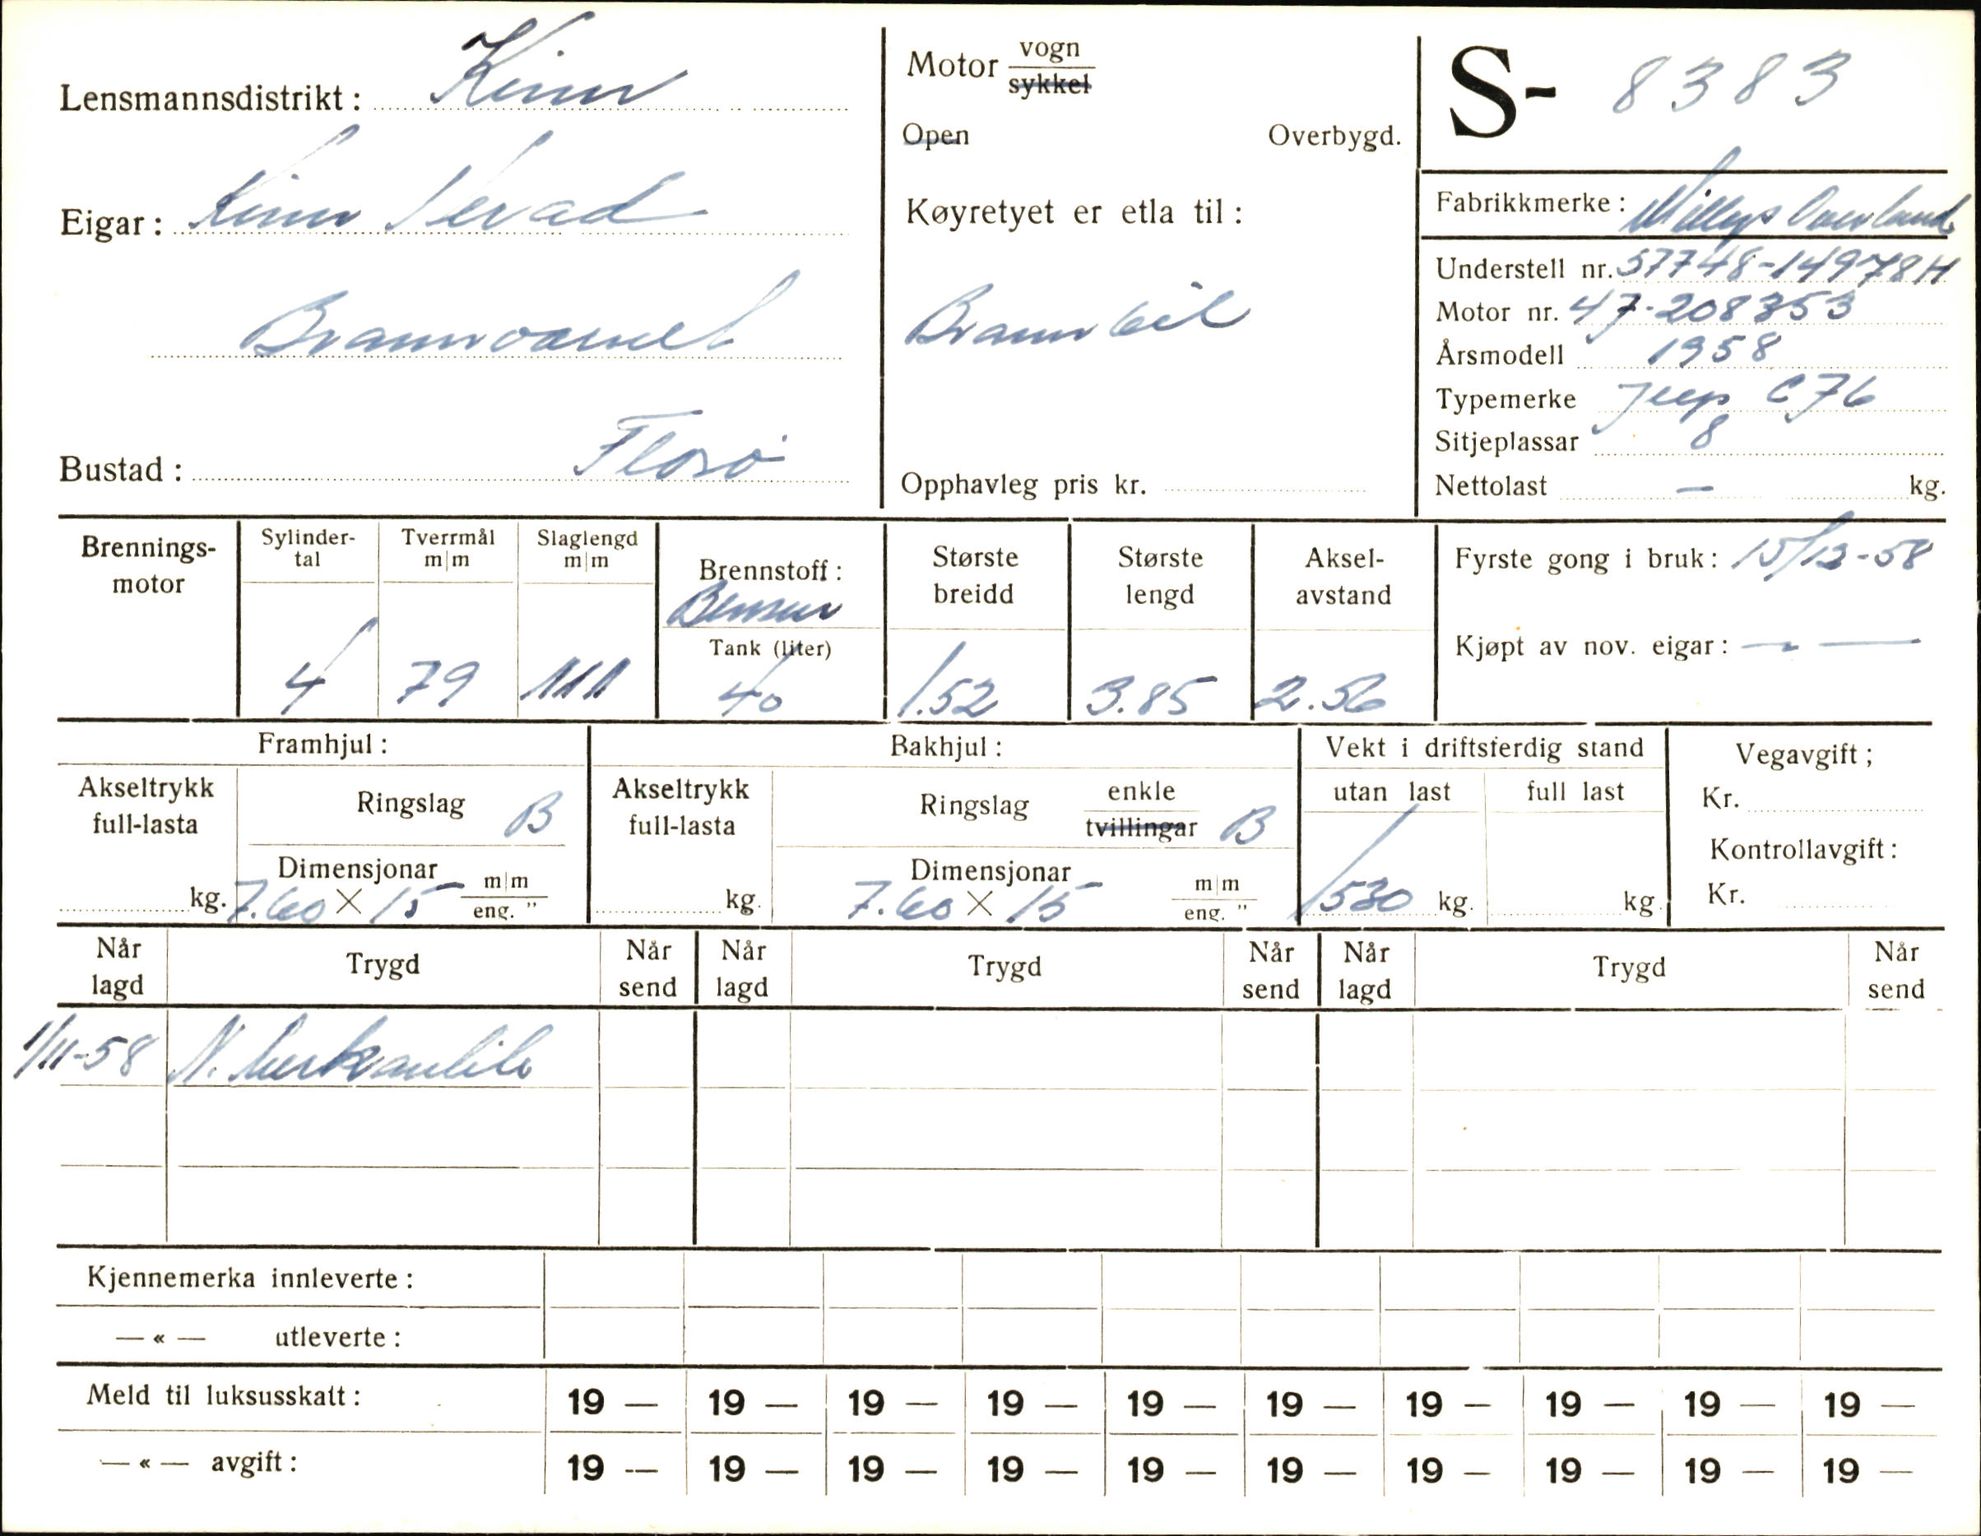 Lensmannsdistrikt: Kinn
Eigar: Kinn Herad
Brannvarnet
Bustad: Florø
Motor vogn
sykkel
Open Overbygd.
Køyretyet er etla til:
Brannbil
Opphavleg pris kr.
S- 8383
Fabrikkmerke: Willys Overland
Understell nr. 57748-14978H
Motor nr. 47-208353
Årsmodell 1958
Typemerke Jeep CJ6
Sitjeplassar 8
Nettolast — kg.
Brennings-
motor
Sylinder-
tal
4
Tverrmål
m|m
79
Slaglengd
m|m
111
Brennstoff:
Bensin
Tank (liter)
40
Største
breidd
1.52
Største
lengd
3.85
Aksel-
avstand
2.56
Fyrste gong i bruk: 15/12-58
Kjøpt av nov. eigar: — —
Framhjul:
Akseltrykk
full-lasta
kg.
Ringslag B
Dimensjonar
7.60 X 15 m|m
eng. "
Bakhjul:
Akseltrykk
full-lasta
kg.
Ringslag enkle
tvillingar B
Dimensjonar
7.60 X 15 m|m
eng. "
Vekt i driftsferdig stand
utan last full last
1530 kg. kg.
Vegavgift;
Kr.
Kontrollavgift:
Kr.
Når
lagd Trygd Når
send Når
lagd Trygd Når
send Når
lagd Trygd Når
send
1/11-58 N. Merkantile
Kjennemerka innleverte:
— « — utleverte:
Meld til luksusskatt: 19 — 19 — 19 — 19 — 19 — 19 — 19 — 19 — 19 — 19 —
— « — avgift: 19 — 19 — 19 — 19 — 19 — 19 — 19 — 19 — 19 — 19 —